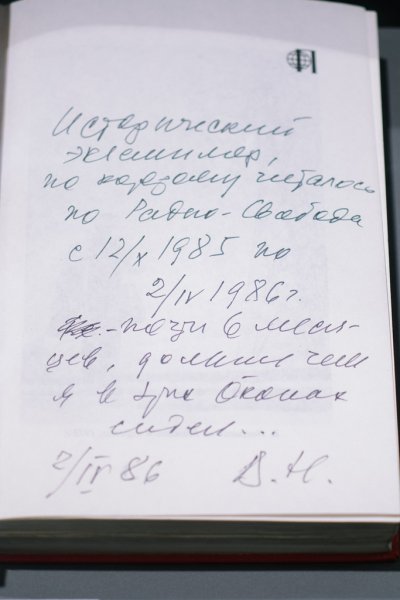 Исторический
экземпляр,
по которому читалось
по Радио-Свобода
с 12/X 1985 по
2/IV 1986 г.
- почти 6 меся-
цев, дольше чем
я в Окопах
сидел...
2/IV 86 В. Н.